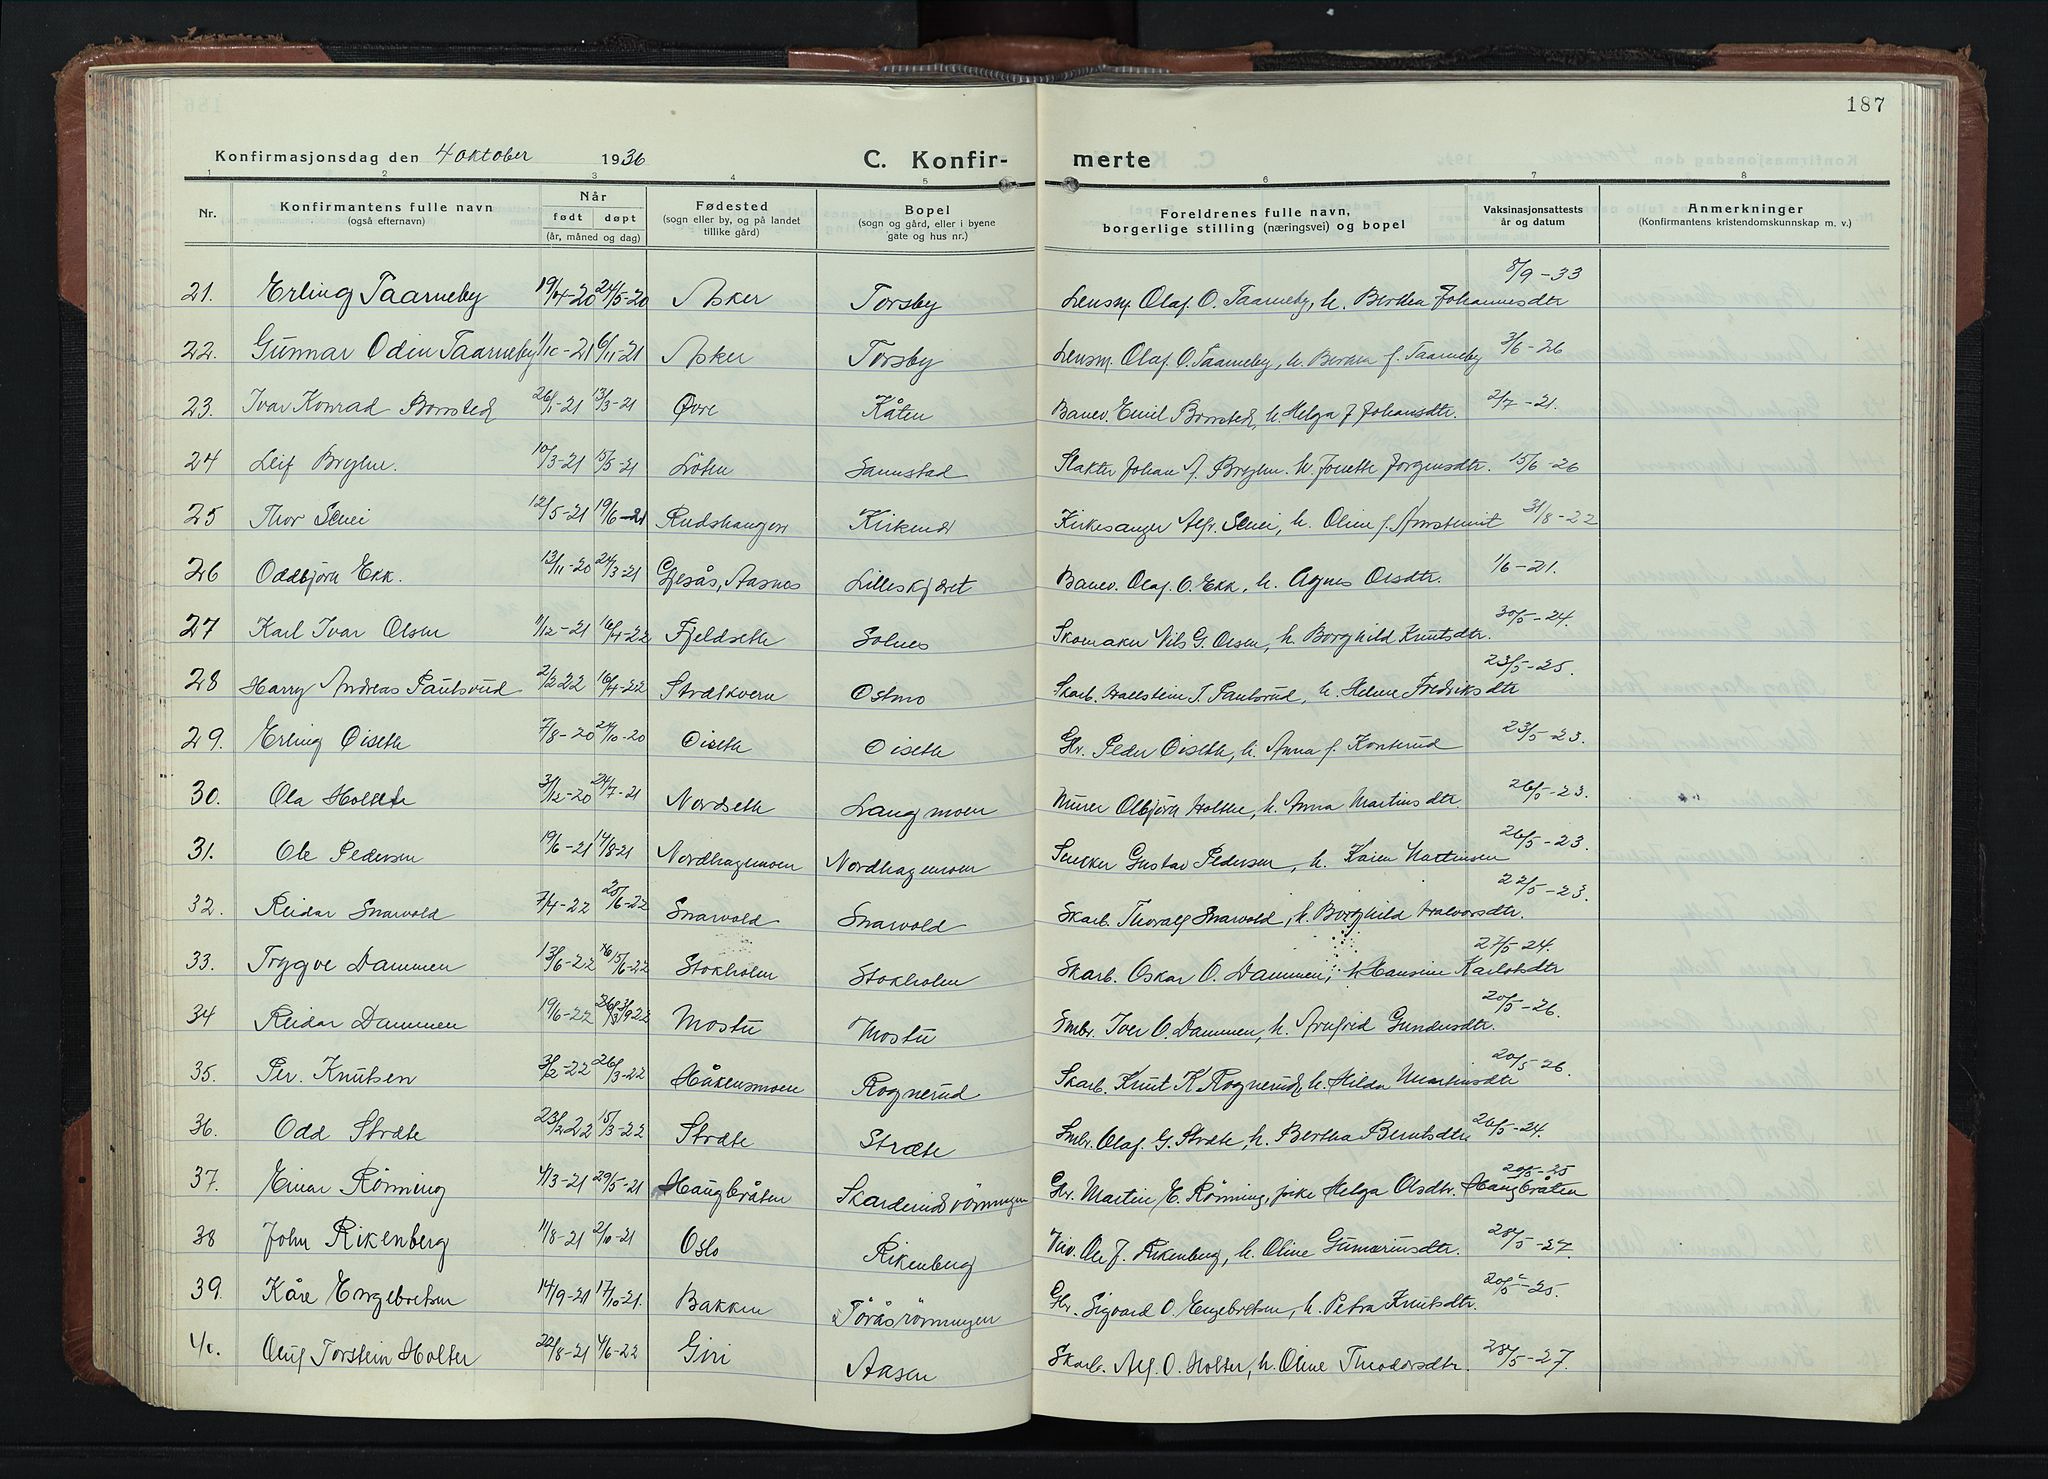 187
Konfirmasjonsdag den 4 oktober 1936 C. Konfir- merte
1 2 3 4 5 6 7 8
Nr. Konfirmantens fulle navn (også efternavn) Når født døpt (år, måned og dag) Fødested (sogn eller by, og på landet tillike gård) Bopel (sogn og gård, eller i byene gate og hus nr.) Foreldrenes fulle navn, borgerlige stilling (næringsvei) og bopel Vaksinasjonsattests år og datum Anmerkninger (Konfirmantens kristendomskunnskap m. v.)
21. Erling Taarneby 19/4-20 24/5-20 Asker Torsby Lensm. Olaf O. Taarneby, h. Berthea Johannesdtr 8/9-33
22. Gunnar Odin Taarneby 1/10-21 6/11-21 Asker Torsby Lensm. Olaf O. Taarneby, h. Berthea f. Taarneby 3/6-26
23. Ivar Konrad 26/1-21 13/3-21 Øvre Kåten Banev. Emil h. Helga J Johansdtr. 2/7-21.
24 Leif Bryhn. 10/3-21 15/5-21 Löten Sannstad Slakter Johan A. Bryhn. h. Jonette Jörgensdtr. 15/6-26
25 Thor 12/5-21 19/6-21 Rudshaugen Kirkenær Kirkesanger Alfr. h. Oline f. 31/8-22
26 Oddbjörn Ekk. 13/11-20 24/3-21 Gjesås, Aasnes Lilleskjæret Banev. Olaf O. Ekk, h. Agnes Olsdtr. 1/6-21.
27 Karl Ivar Olsen 11/12-21 16/4-22 Fjeldseth Solnes Skomaker Nils G. Olsen, h. Borghild Knutsdtr. 30/5-24.
28 Harry Andreas Paulsrud 2/2 22 16/4-22 Strætkvern Ostmo Skarb. Hallstein J. Paulsrud, h. Helene Fredriksdtr 23/5-25.
29. Erling Oiseth 7/8-20 24/10-20 Oiseth Oiseth Gbr. Peder Oiseth, h. Anna f. Konterud 23/5-23.
30. Ola Holthe 31/12-20 24/7-21 Nordseth Langmoen Murer Olbjörn Holthe, h. Anna Martinsdtr. 26/5-23.
31. Ole Pedersen 19/6-21 14/8-21 Nordhagemoen Nordhagemoen Snekker Gustav Pedersen, h. Karen Martinsen 26/5-23.
32. Reidar Snarvold 7/4-22 25/6-22 Snarvold Snarvold Skarb. Thoralf Snarvold, h. Borghild Halvorsdtr. 22/5-23.
33. Trygve Dammen 13/6-22 15/6-22 Stokholen Stokholen Skarb. Oskar O. Dammen, h Hansine Karlotsdtr 27/5-24.
34 Reidar Dammen 19/6-22 3/9 22 Mostu Mostu Smbr. Iver O. Dammen, h. Arnfrid Gundersdtr. 20/5-26.
35. Per. Knutsen 3/2-22 26/3-22 Håkensmoen Rognerud Skarb. Knut K Rognerud, h. Hilda Martinsdtr 20/5-26.
36. Odd Stræte 23/2 22 15/3-22 Stræte Stræte Smbr. Olaf. G. Stræte, h. Bertha Berntsdtr 26/5-24.
37. Einar Rönning 4/3-21 29/5-21 Haugbråten Skarderudsrönningen Gbr. Martin E. Rönning, pike Helga Olsdtr. Haugbråten 20/5-25
38 John Rikenberg 11/8-21 2/10-21 Oslo Rikenberg Viv. Ole J. Rikenberg, h. Oline Gunneriusdtr. 28/5-27.
39. Kåre Engebretsen 14/9-21 17/10-21. Bakken Töråsrönningen Gbr. Sigvard O. Engebretsen, h. Petra Knutsdtr. 20/5-25.
40. Oluf Torstein Holter 22/8-21 4/6-22 Giri Aasen Skarb. Alf. O. Holter, h. Oline Theodorsdtr. 28/5-27.